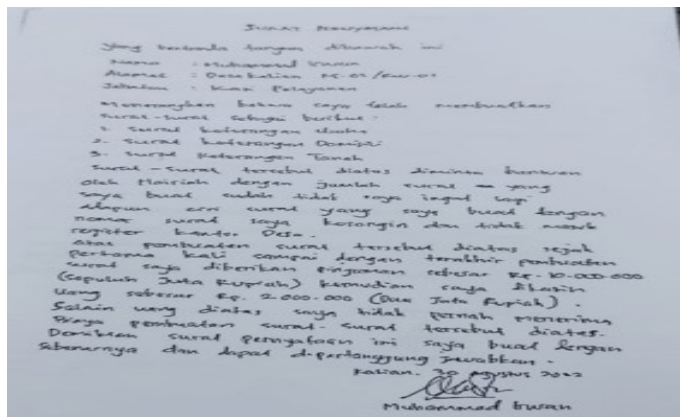 SURAT PERNYATAAN
Yang bertanda tangan dibawah ini
Nama : Muhammad Irwan
Alamat : Desa Kalian Rt-02/RW-02
Jabatan : Kasi Pelayanan
Menerangkan bahwa saya telah membuatkan
surat-surat sebagai berikut :
1. Surat keterangan Usaha
2. Surat keterangan Domisili
3. Surat Keterangan Tanah
Surat-surat tersebut diatas diminta bantuan
Oleh Mairiah dengan jumlah surat yang
saya buat sudah tidak saya ingat lagi
Adapun surat yang saya buat dengan
nomor surat saya karangin dan tidak masuk
register kantor Desa.
atas pembuatan surat tersebut diatas sejak
pertama kali sampai dengan terakhir pembuatan
surat saya diberikan pinjaman sebesar Rp. 10.000.000
(Sepuluh Juta Rupiah) kemudian saya dikasih
Uang sebesar Rp. 2.000.000 (Dua Juta Rupiah).
Selain uang diatas saya tidak pernah menerima
Biaya pembuatan surat-surat tersebut diatas.
Demikian surat pernyataan ini saya buat dengan
Sebenarnya dan dapat dipertanggung jawabkan.
Kalian, 30 Agustus 2022
Muhammad Irwan